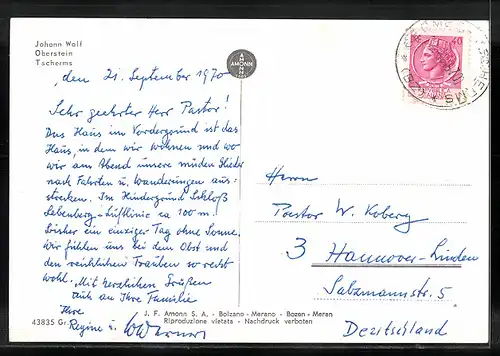 Johann Wolf
Oberstein
Tscherms
AMONN
40
den 21. September 1970
Sehr geehrter Herr Pastor!
Das Haus im Vordergrund ist das
Haus, in dem wir wohnen und wo
wir am Abend unsere müden Glieder
nach Fahrten u. Wanderungen aus-
strecken. Im Hindergrund Schloß
Lebenberg - Luftlinie ca 100 m.
Bisher ein einziger Tag ohne Sonne.
Wir fühlen uns bei dem Obst und
den reichlichen Trauben so recht
wohl. Mit herzlichen Grüßen
auch an Ihre Familie
Ihre
Regine u.
Herrn
Pastor W. Koberg
3 Hannover-Linden
Salzmannstr. 5
Deutschland
43835 Gr.
J. F. Amonn S. A. - Bolzano - Merano - Bozen - Meran
Riproduzione vietata - Nachdruck verboten